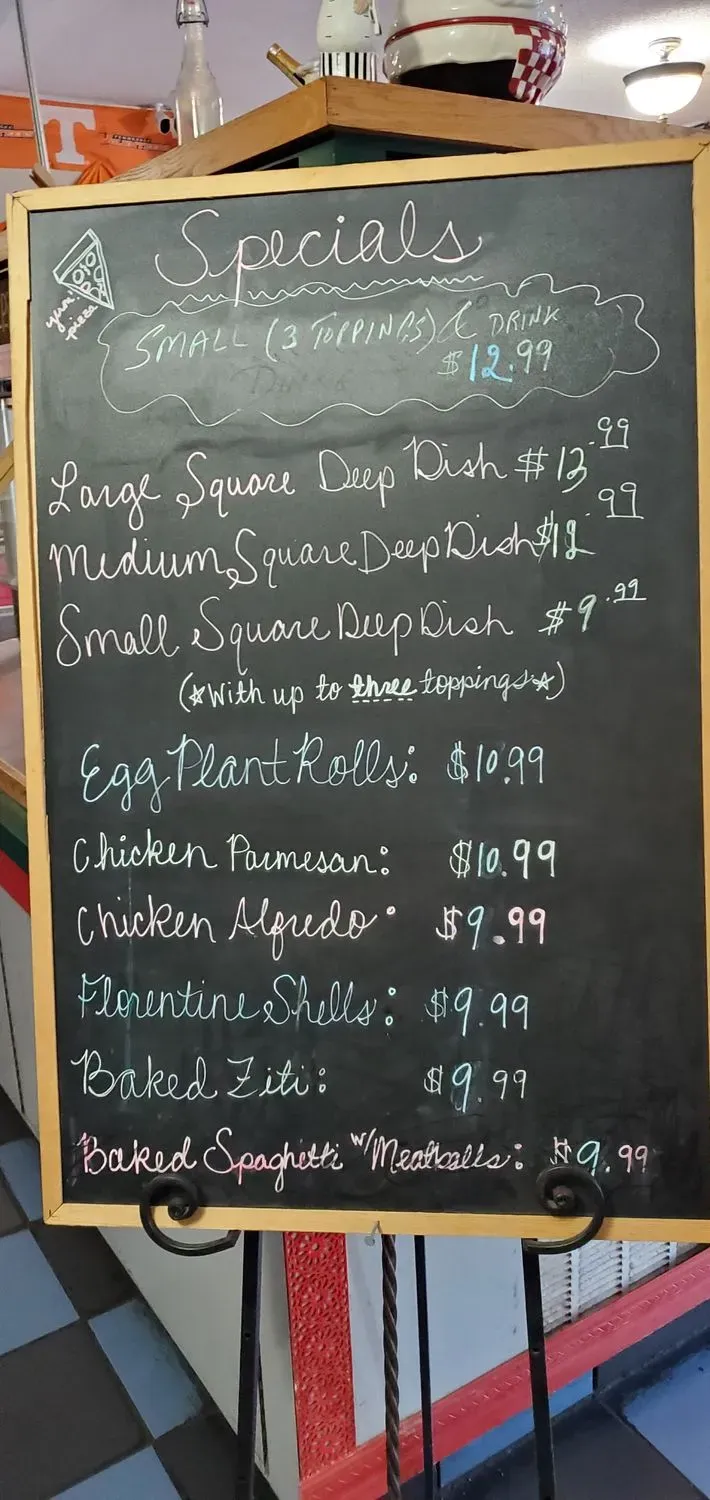 T
Specials
yum!
pizza
SMALL (3 TOPPINGS) & DRINK
$12.99
Large Square Deep Dish $13.99
Medium Square Deep Dish $12.99
Small Square Deep Dish $9.99
(☆With up to three toppings☆)
Egg Plant Rolls: $10.99
Chicken Parmesan: $10.99
Chicken Alfredo: $9.99
Florentine Shells: $9.99
Baked Ziti: $9.99
Baked Spaghetti w/Meatballs: $9.99